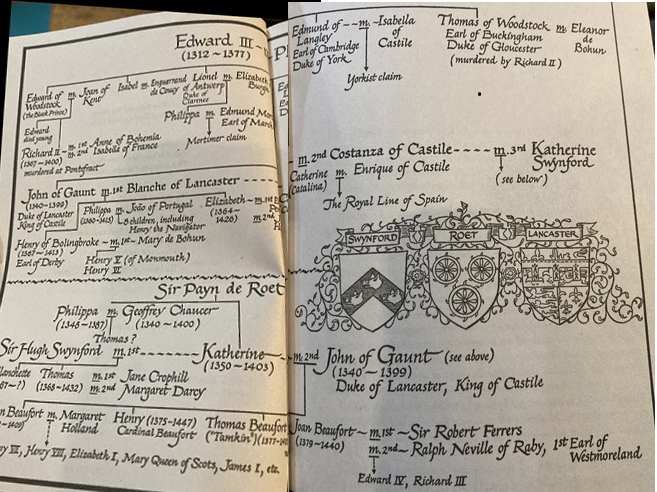 Edward III
(1312 ~ 1377)
Edward of Woodstock
(the Black Prince)
m. Joan of Kent
Isabel m. Enguerrand de Coucy
Lionel of Antwerp
Duke of Clarence
m. Elizabeth
Edward
died young
Philippa m. Edmund
Earl of
Mortimer claim
Richard II m. 1st Anne of Bohemia
(1367 ~ 1400) m. 2nd Isabella of France
murdered at Pontefract
Edmund of Langley
Earl of Cambridge
Duke of York
m. Isabella of Castile
Yorkist claim
Thomas of Woodstock
Earl of Buckingham
Duke of Gloucester
(murdered by Richard II)
m. Eleanor de Bohun
John of Gaunt m. 1st Blanche of Lancaster
(1340~1399)
Duke of Lancaster
King of Castile
m. 2nd Costanza of Castile m. 3rd Katherine Swynford
(see below)
Philippa m. João of Portugal
8 children, including
Henry the Navigator
Elizabeth
(1364~
1426)
m. 2nd
Catherine
(Catalina)
m. Enrique of Castile
The Royal Line of Spain
Henry of Bolingbroke m. 1st Mary de Bohun
(1367~1413)
Earl of Derby
Henry V (of Monmouth)
SWYNFORD
ROET
LANCASTER
Sir Payn de Roet
Philippa m. Geoffrey Chaucer
(1340 ~ 1400)
Thomas ?
Sir Hugh Swynford m. 1st Katherine m. 2nd John of Gaunt (see above)
(1350 ~ 1403)
(1340 ~ 1399)
Duke of Lancaster, King of Castile
Thomas m. 1st Jane Crophill
(1368~1432) m. 2nd Margaret Darcy
Beaufort m. Margaret Holland
Henry (1375~1447)
Cardinal Beaufort
Thomas Beaufort
("Tamkin")
Joan Beaufort m. 1st Sir Robert Ferrers
(1379~1440) m. 2nd Ralph Neville of Raby, 1st Earl of Westmoreland
Henry VIII, Elizabeth I, Mary Queen of Scots, James I, etc.
Edward IV, Richard III